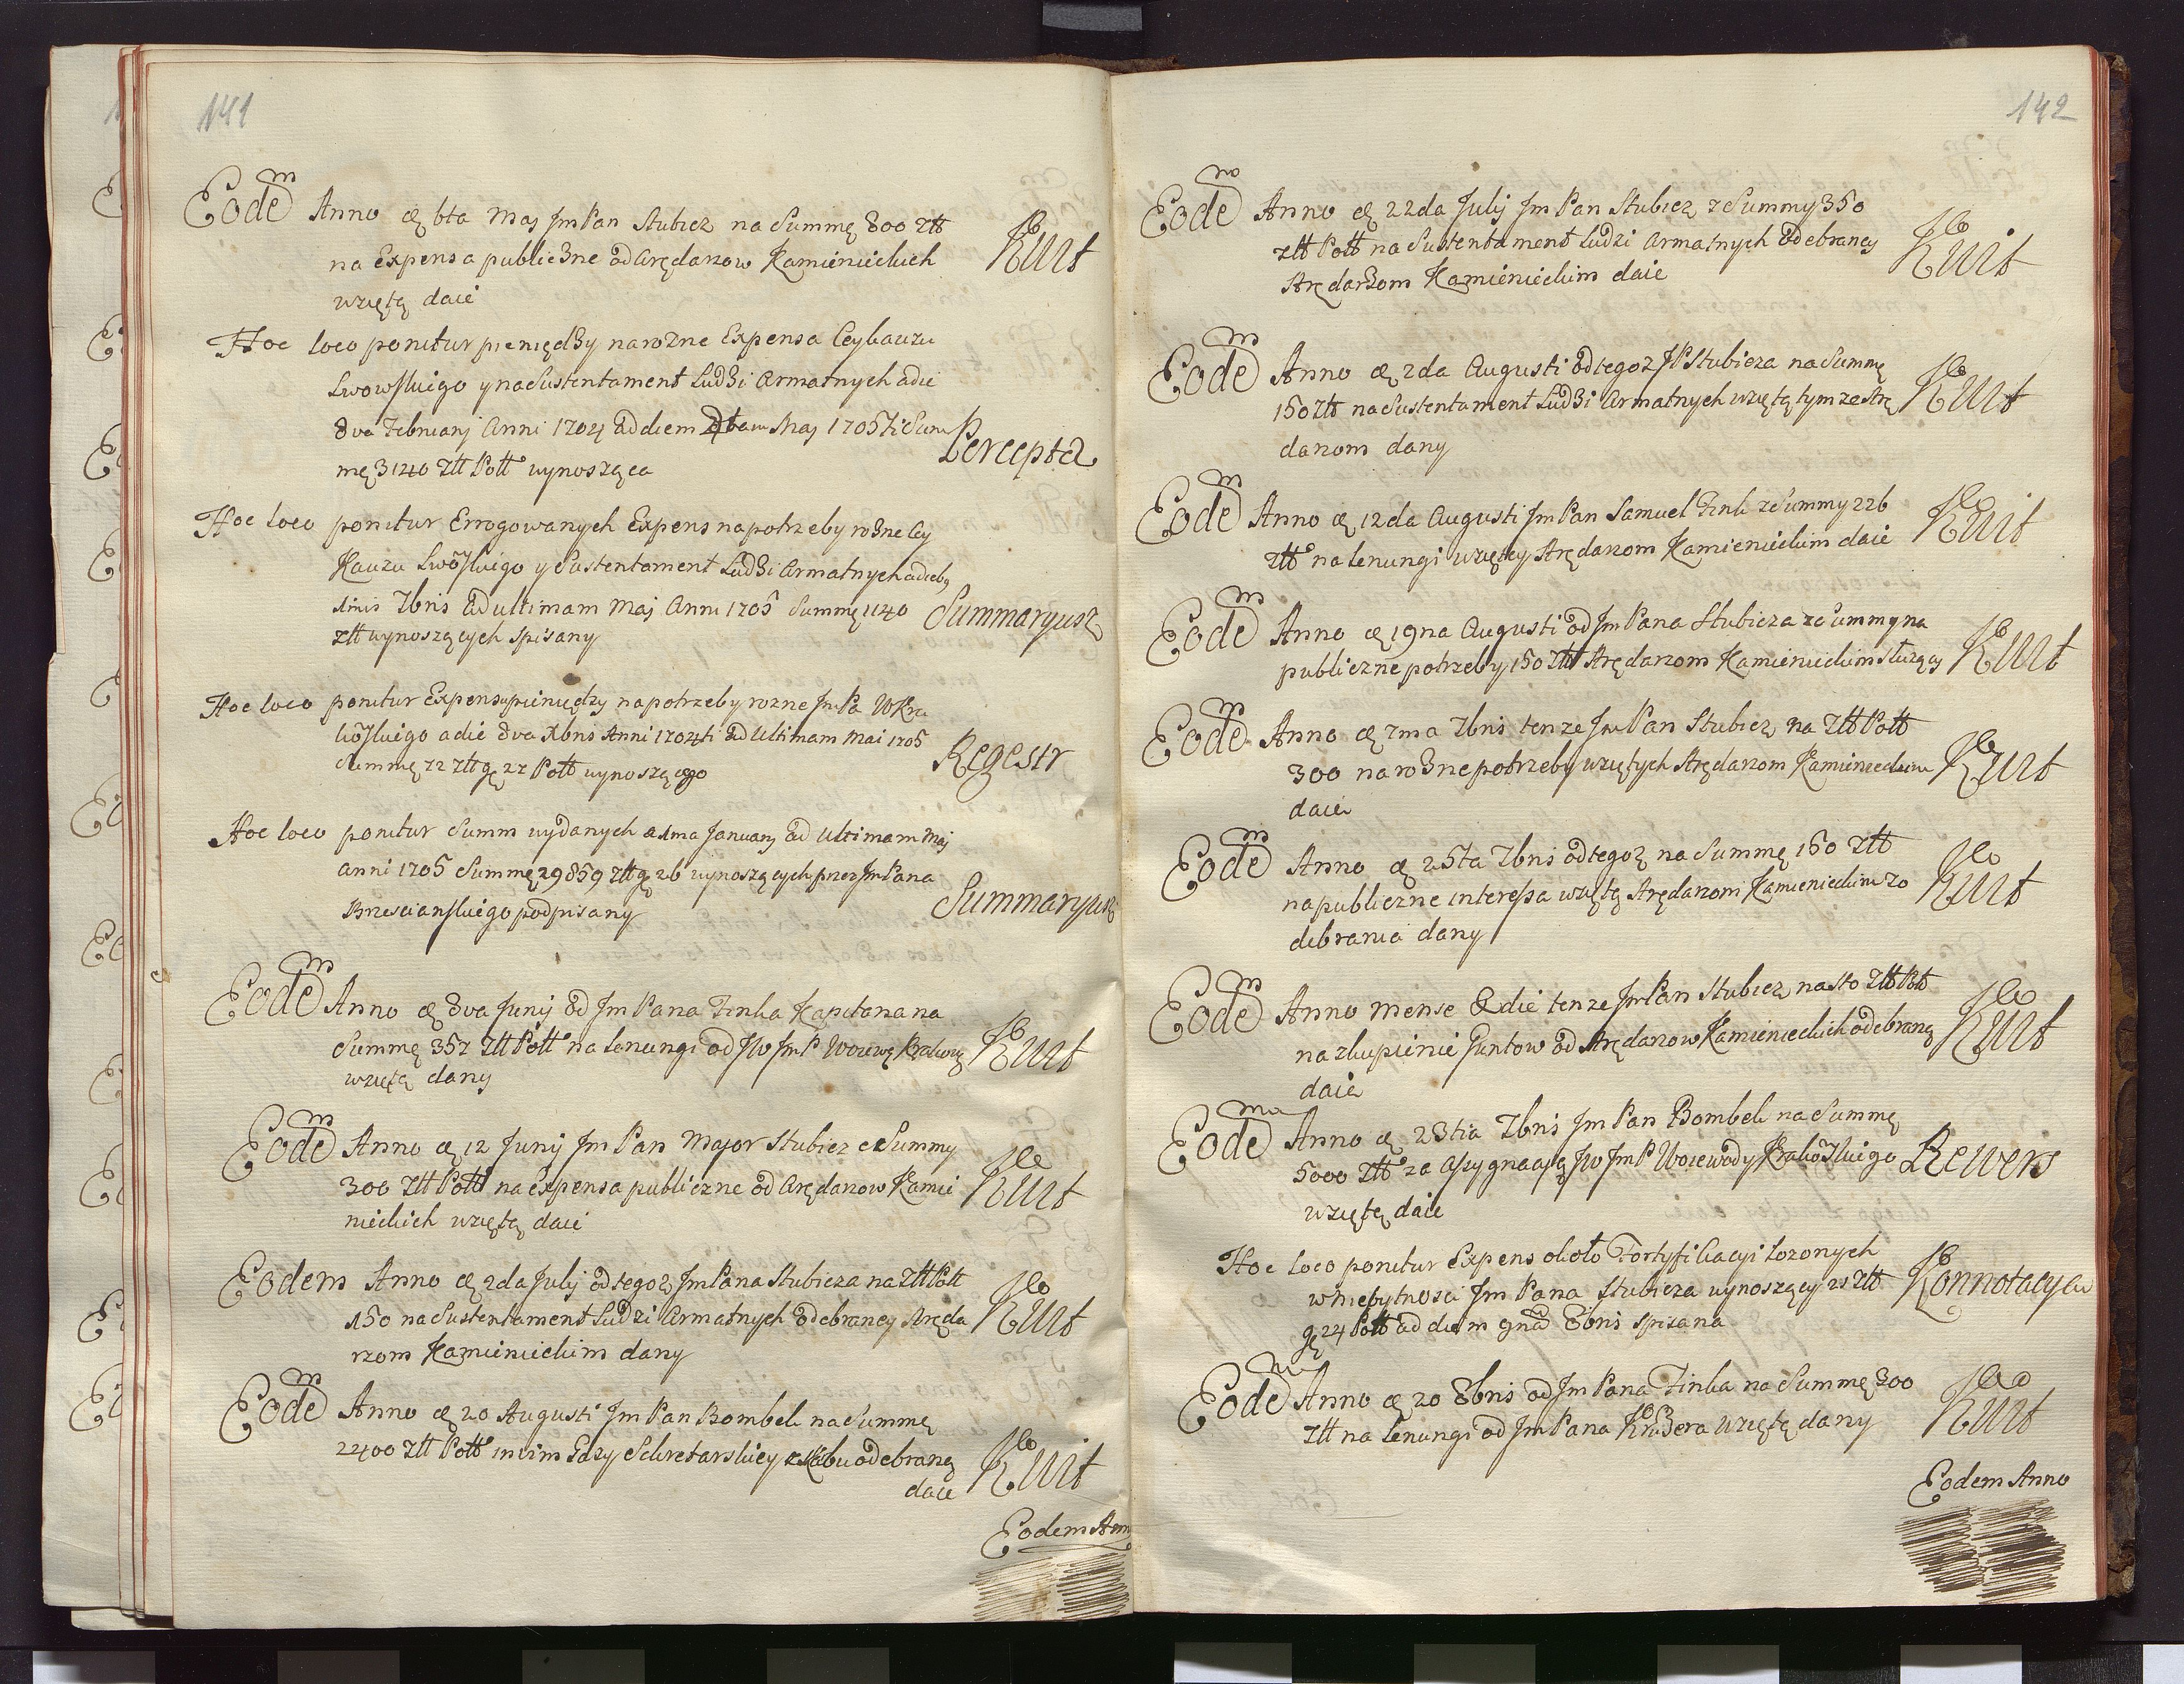 141
Eodem Anno d 6ta Maj Jm Pan Stubicz na Summę 800 Złł
na Expensa publiczne od Arędarzow Kamienieckich
wziętą daie
Kwit
Hoc loco ponitur pieniędzy na rozne Expensa Ceykauzu
Lwowskiego y na Sustentament Ludzi Armatnych a die
8va Februarij Anni 1704 ad diem Maj 1705ti Sum
mę 3140 Złł Poll wynosząca
Percepta
Hoc loco ponitur Errogowanych Expens na potrzeby rozne Cey
Kauzu Lwowskiego y Sustentament Ludzi Armatnych a die
7bris ad ultimam Maj Anni 1705 Summę 1140
złł wynoszących spisany
Summaryusz
Hoc loco ponitur Expens pieniędzy na potrzeby rozne Jm Pa WKra
kowskiego a die 8va Xbris Anni 1704ti ad Ultimam Mai 1705
Summę 72 złł gr 22 Poll wynoszącego
Regestr
Hoc loco ponitur Summ wydanych a 1ma Januarij ad Ultimam Maj
anni 1705 Summę 29859 złł gr 26 wynoszących przez Jm Pana
Brzescianskiego podpisany
Summaryusz
Eodem Anno d 8va Junij od Jm Pana Finka Kapitana na
Summę 357 Złł Poll na lenungi od JW Jm P Woiewę Krakowę
wziętą dany
Kwit
Eodem Anno d 12 Junij Jm Pan Major Stubicz z Summy
300 Złł Poll na expensa publiczne od Arędarzow Kamie
nieckich wziętą daie
Kwit
Eodem Anno d 2da Julij od tegoz Jm Pana Stubicza na Złł Poll
150 na Sustentament Ludzi Armatnych odebraney Aręda
rzom Kamienieckim dany
Kwit
Eodem Anno d 20 Augusti Jm Pan Bombek na Summę
22400 Złł Poll Sekretarskiey odebraną
daie
Kwit
Eodem Anno
142
Eodem Anno d 22da Julij Jm Pan Stubicz z Summy 350
złł Poll na Sustentament Ludzi Armatnych odebraney
Arędarzom Kamienieckim daie
Kwit
Eodem Anno d 2da Augusti od tegoz JP Stubicza na Summę
150 Złł na Sustentament Ludzi Armatnych wziętą tym ze Arę
darzom dany
Kwit
Eodem Anno d 12da Augusti Jm Pan Samuel Fink z Summy 226
złł na lenungi wziętey Arędarzom Kamienieckim daie
Kwit
Eodem Anno d 19na Augusti od Jm Pana Stubicza z Summy na
publiczne potrzeby 150 Złł Arędarzom Kamienieckim służący
Kwit
Eodem Anno d 7ma 7bris tenze Jm Pan Stubicz na Złł Poll
300 na rozne potrzeby wziętych Arędarzom Kamienieckim
daie
Kwit
Eodem Anno d 25ta 7bris od tegoz na Summę 150 Złł
na publiczne interessa wziętą Arędarzom Kamienieckim zo
debrania dany
Kwit
Eodem Anno mense & die tenze Jm Pan Stubicz na sto Złł Poll
na zkupienie Funtow od Arędarzow Kamienieckich odebraną
daie
Kwit
Eodem Anno d 23tia 7bris Jm Pan Bombek na Summę
5000 Złł za Assygnacyą JW Jm P Woiewody Krakowskiego
wziętą daie
Rewers
Hoc loco ponitur Expens około Fortyfikacyi łozonych
w niebytnosci Jm Pana Stubicza wynoszący 21 złł
gr 24 Poll ad diem 9na 8bris spisana
Konnotacya
Eodem Anno d 20 8bris od Jm Pana Finka na Summę 300
złł na lenungi od Jm Pana Krubera wziętą dany
Kwit
Eodem Anno